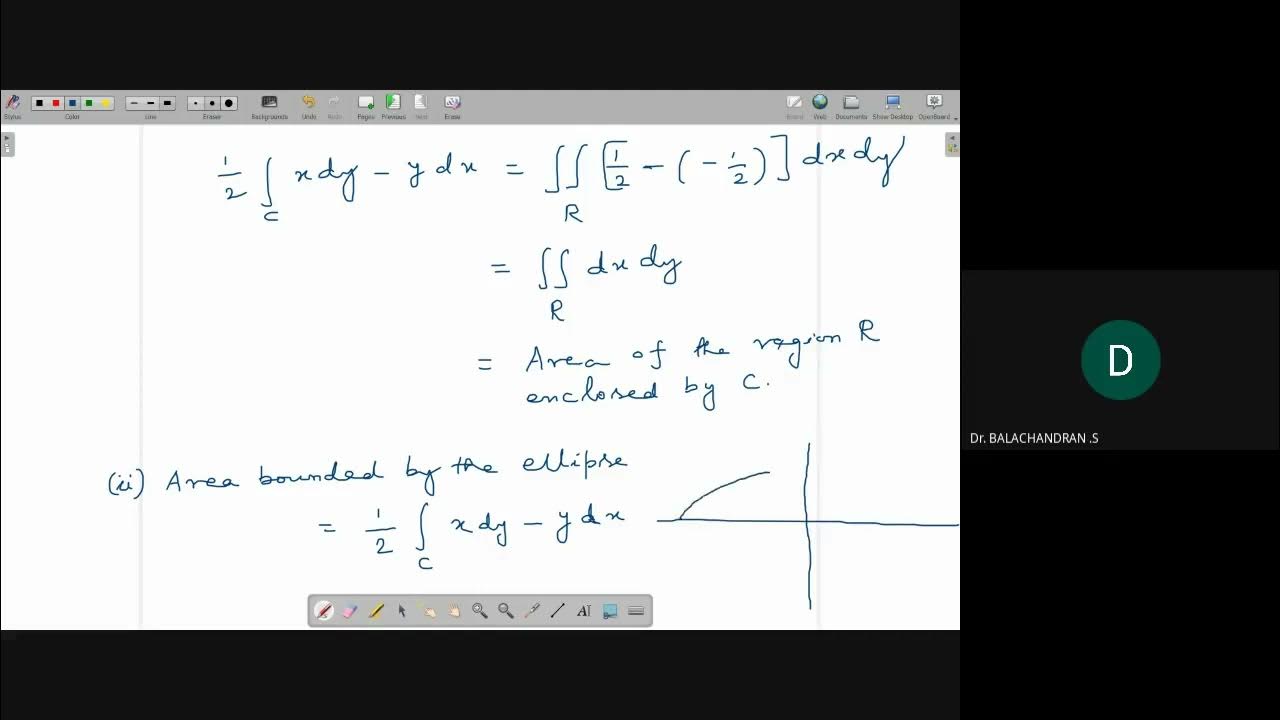 Stylus Color Line Eraser Backgrounds Undo Redo Pages Previous Next Erase Board Web Documents Show Desktop OpenBoard
1/2 ∫_C x dy - y dx = ∬_R [1/2 - (-1/2)] dx dy
= ∬_R dx dy
= Area of the region R
enclosed by C.
(ii) Area bounded by the ellipse
= 1/2 ∫_C x dy - y dx
AI
D
Dr. BALACHANDRAN .S